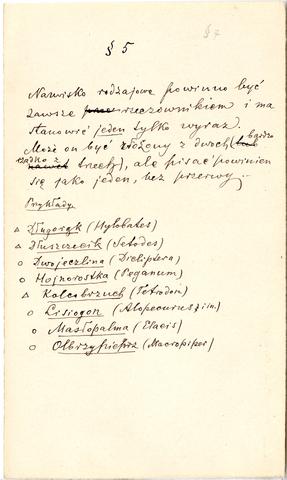 § 7
§ 5
Nazwisko rodzajowe powinno być
zawsze rzeczownikiem i ma
stanowić jeden tylko wyraz.
Może on być złożony z dwóch (lub bardzo
rzadko z
nawet trzech), ale pisać powinien
się jako jeden, bez przerwy.
Przykłady
△ Długoręk (Hylobates)
△ Tłuszczecik (Setodes)
○ Dwojeczlina (Dicliptera)
○ Hojnorostka (Peganum)
△ Kolcobrzuch (Tetrodon)
○ Lisiogon (Alopecurus)
○ Masłopalma (Elaeis)
○ Olbrzypieprz (Macropiper)